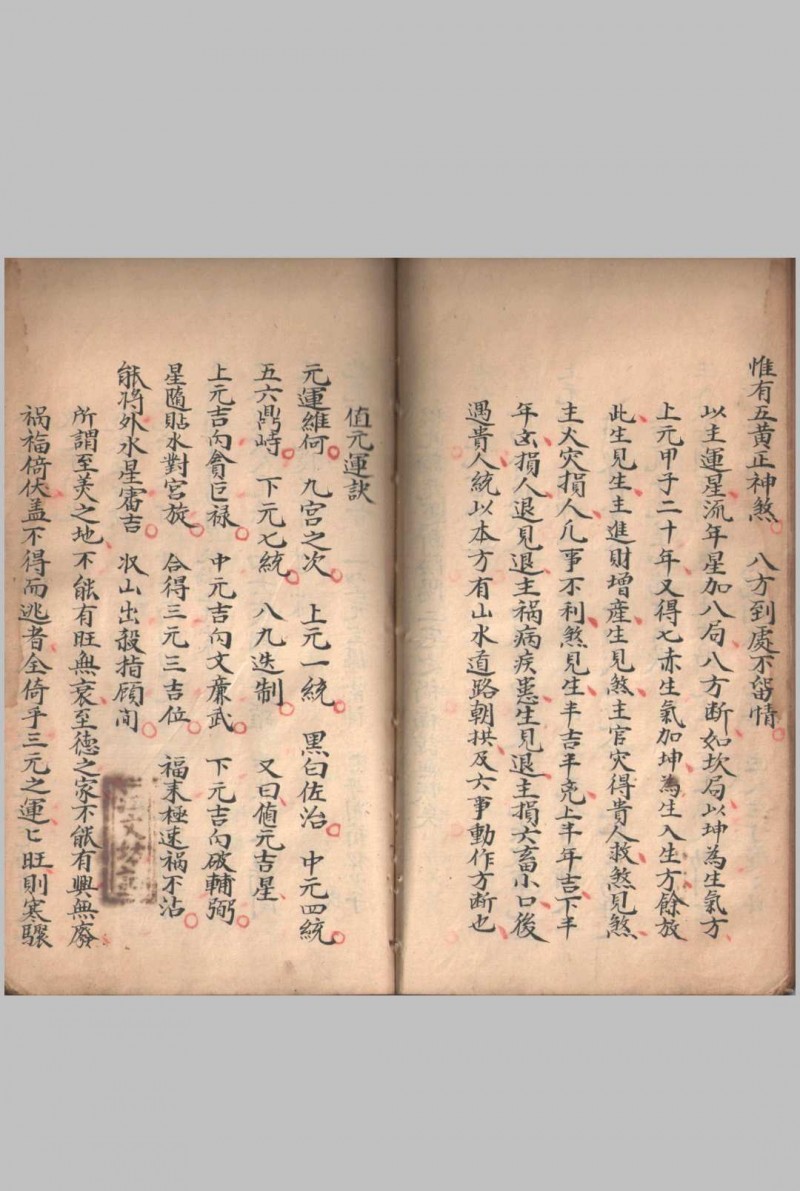 惟有五黃正神煞　八方到處不留情
以主運星流年星加八局八方断如坎局以坤為生氣方
上元甲子二十年又得七赤生氣加坤為生入生方餘放
此生見生主進財增產生見煞主官灾得貴人救煞見煞
主火灾損人凢事不利煞見生半吉半兇上半年吉下半
年玄損人退見退主禍病疾患生見退主損六畜小口後
遇貴人統以本方有山水道路朝拱及六事動作方断也
值元運訣
元運維何　九宮之次　上元一統　黑白佐治　中元四統
五六鼎峙　下元七統　八九迭制　又曰値元吉星
上元吉向貪巨禄　中元吉向文廉武　下元吉向破輔弼
星隨貼水對宮旋　合得三元三吉位　福末極速禍不沾
能将外水星審吉　収山出殺指顧间
所謂至美之地不能有旺無衰至德之家不能有興無廢
禍福倚伏盖不得而逃者全倚乎三元之運匕旺則寒驟